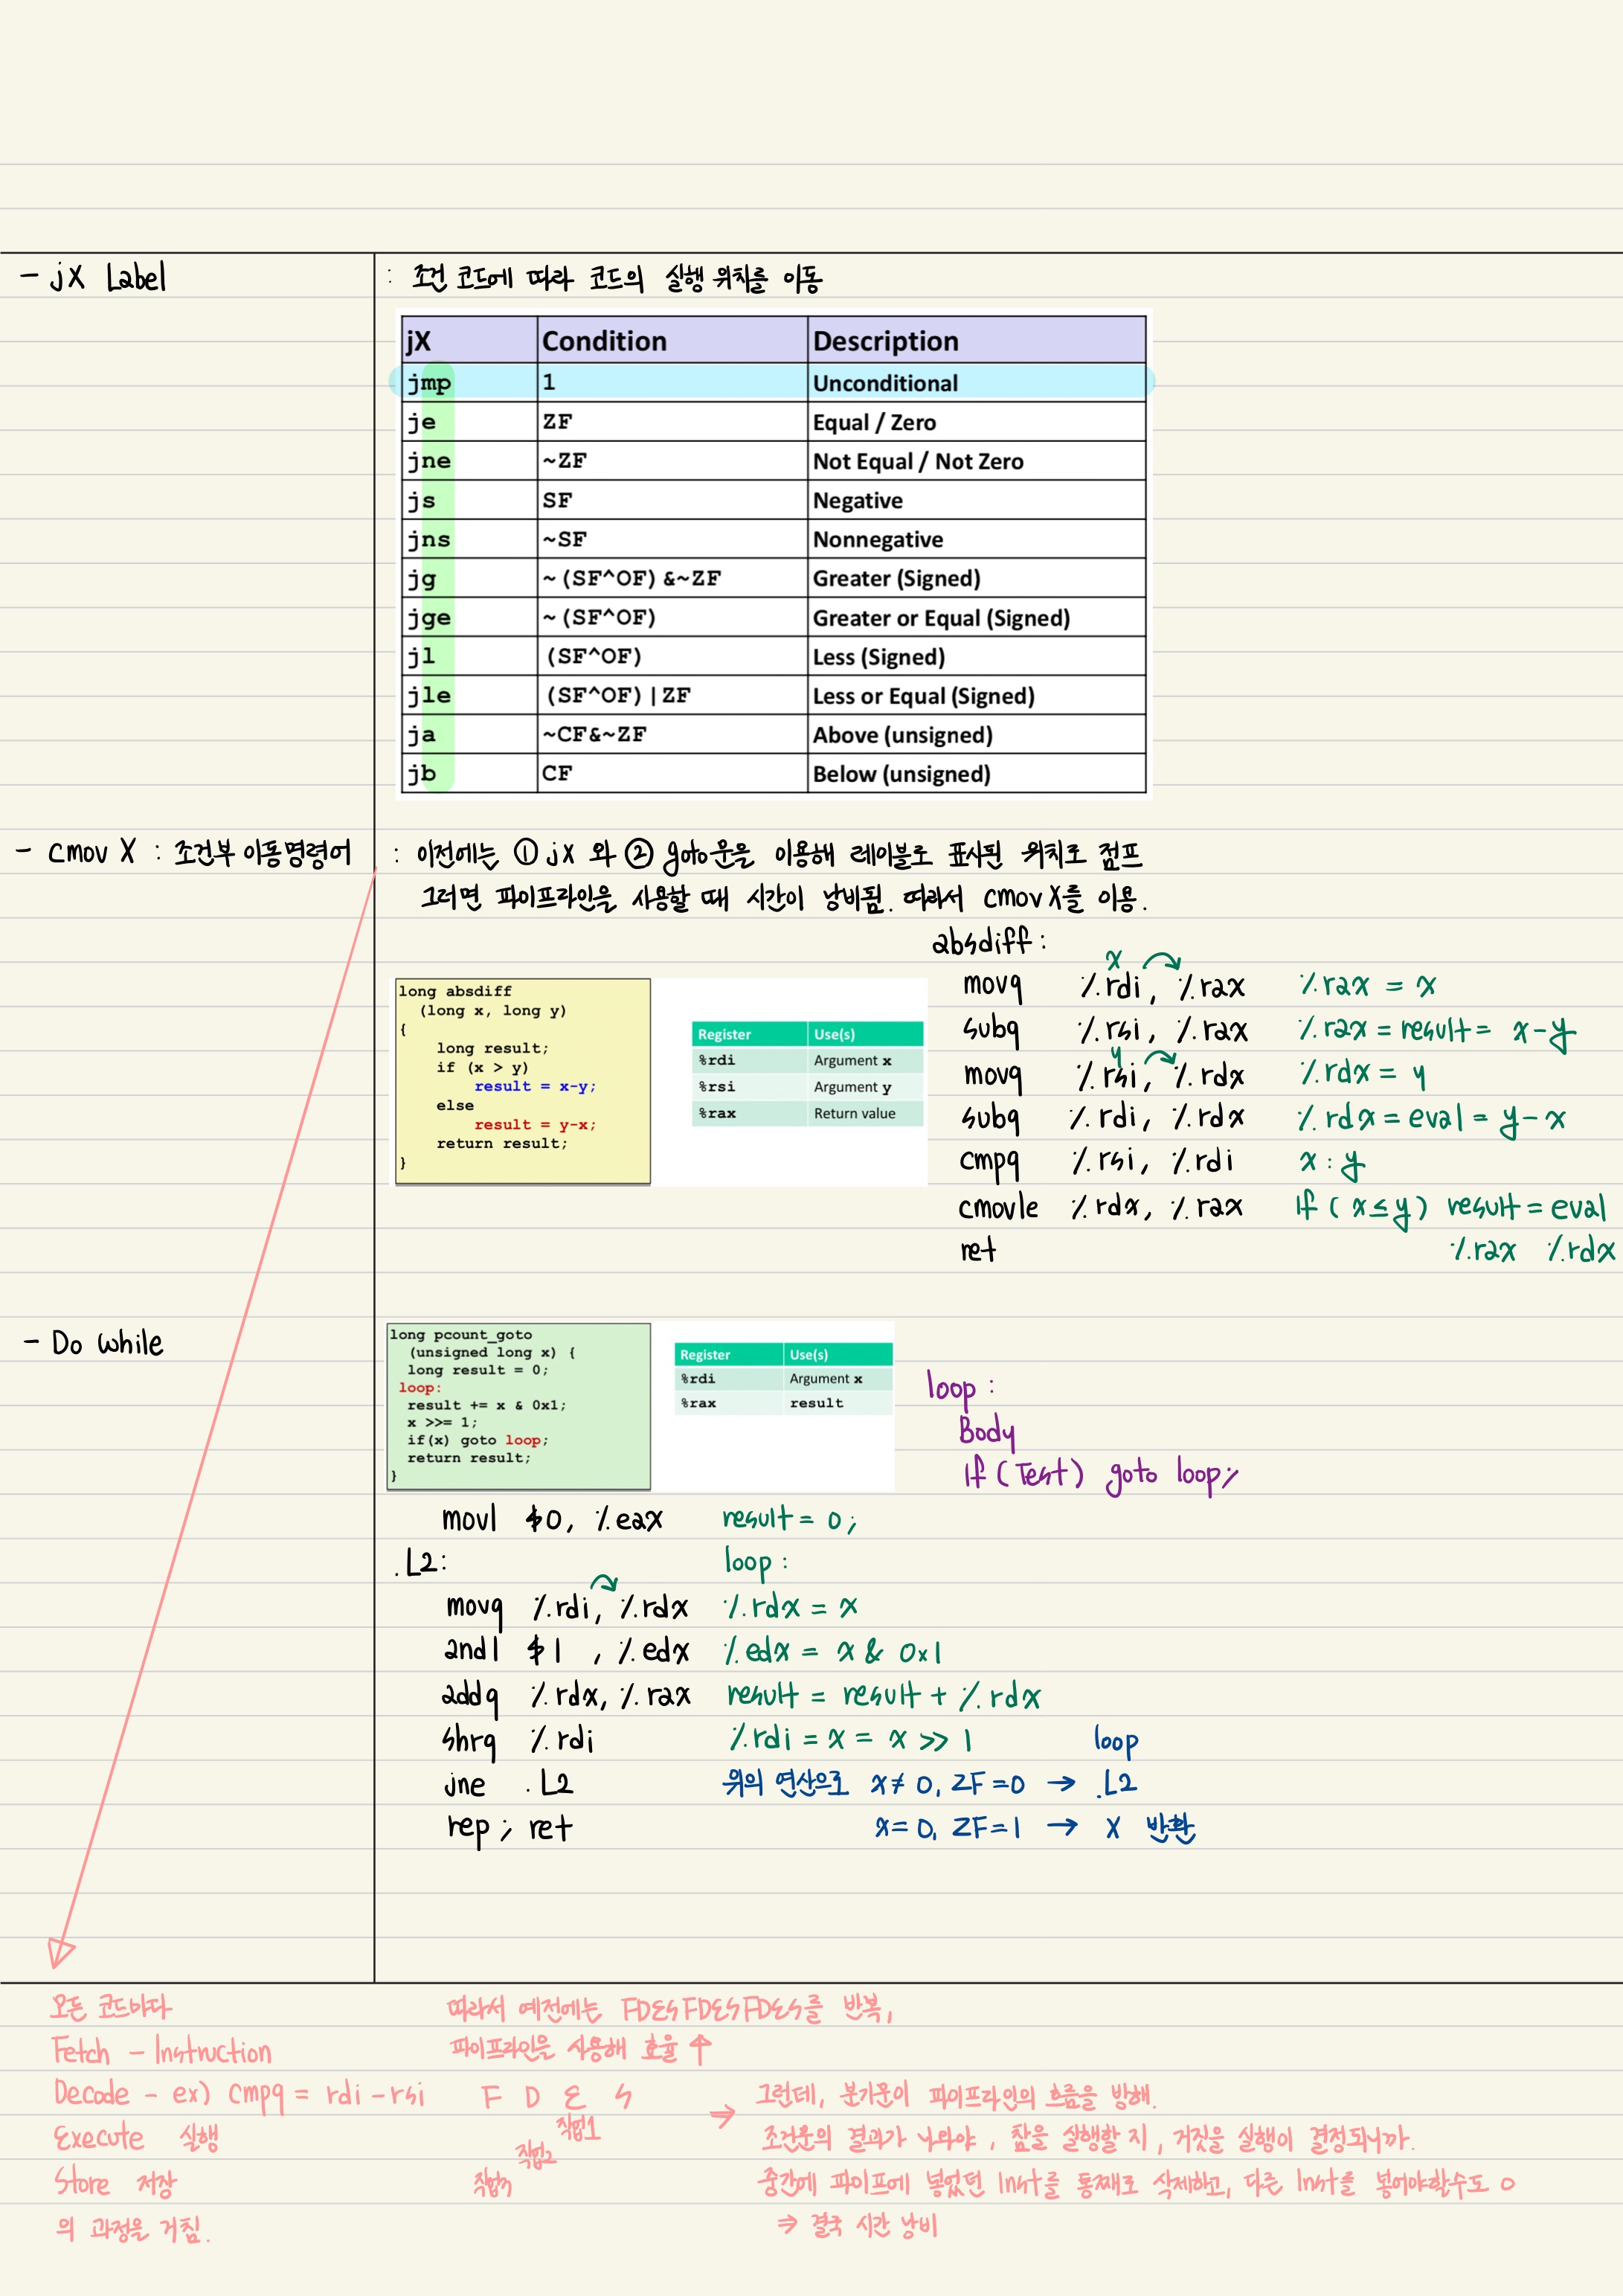 - jX Label
: 조건 코드에 따라 코드의 실행 위치를 이동
jX Condition Description
jmp 1 Unconditional
je ZF Equal / Zero
jne ~ZF Not Equal / Not Zero
js SF Negative
jns ~SF Nonnegative
jg ~(SF^OF)&~ZF Greater (Signed)
jge ~(SF^OF) Greater or Equal (Signed)
jl (SF^OF) Less (Signed)
jle (SF^OF)|ZF Less or Equal (Signed)
ja ~CF&~ZF Above (unsigned)
jb CF Below (unsigned)
- cmov X : 조건부 이동명령어
: 이전에는 ① jX 와 ② goto문을 이용해 레이블로 표시된 위치로 점프
그러면 파이프라인을 사용할 때 시간이 낭비됨. 따라서 cmov X를 이용.
long absdiff
(long x, long y)
{
long result;
if (x > y)
result = x-y;
else
result = y-x;
return result;
}
Register Use(s)
%rdi Argument x
%rsi Argument y
%rax Return value
absdiff :
x
movq %rdi, %rax %rax = x
subq %rsi, %rax %rax = result = x-y
y
movq %rsi, %rdx %rdx = y
subq %rdi, %rdx %rdx = eval = y-x
cmpq %rsi, %rdi x : y
cmovle %rdx, %rax if ( x ≤ y ) result = eval
ret %rax %rdx
- Do while
long pcount_goto
(unsigned long x) {
long result = 0;
loop:
result += x & 0x1;
x >>= 1;
if(x) goto loop;
return result;
}
Register Use(s)
%rdi Argument x
%rax result
loop :
Body
if (Test) goto loop;
movl $0, %eax result = 0;
.L2: loop :
movq %rdi, %rdx %rdx = x
andl $1 , %edx %edx = x & 0x1
addq %rdx, %rax result = result + %rdx
shrq %rdi %rdi = x = x >> 1 loop
jne .L2 위의 연산으로 x ≠ 0, ZF = 0 → .L2
rep ; ret x = 0, ZF = 1 → X 반환
모든 코드마다
Fetch - Instruction
Decode - ex) cmpq = rdi - rsi
Execute 실행
Store 저장
의 과정을 거침.
따라서 예전에는 FDESFDESFDES를 반복,
파이프라인을 사용해 효율 ↑
F D E S
작업1
작업2
작업3
⇒ 그런데, 분기문이 파이프라인의 흐름을 방해.
조건문의 결과가 나와야, 참을 실행할 지, 거짓을 실행이 결정되니까.
중간에 파이프에 넣었던 Inst를 통째로 삭제하고, 다른 Inst를 넣어야할수도 O
⇒ 결국 시간 낭비